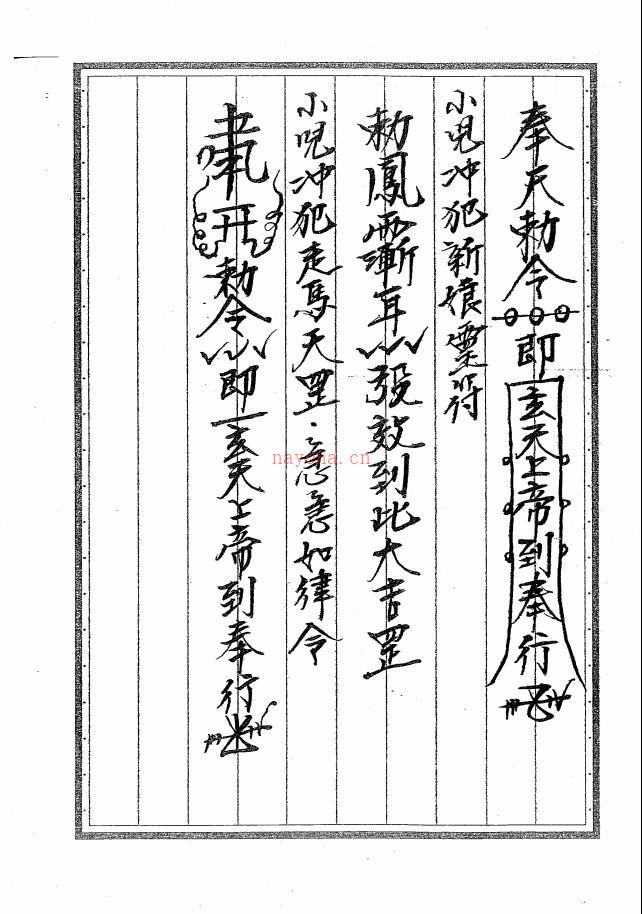 奉天勅令即玄天上帝到奉行
小児冲犯新娘票符
勅鳳耳發效到比大吉罡
小児冲犯走馬天罡·急急如律令
勅令即玄天上帝到奉行
nayona.cn